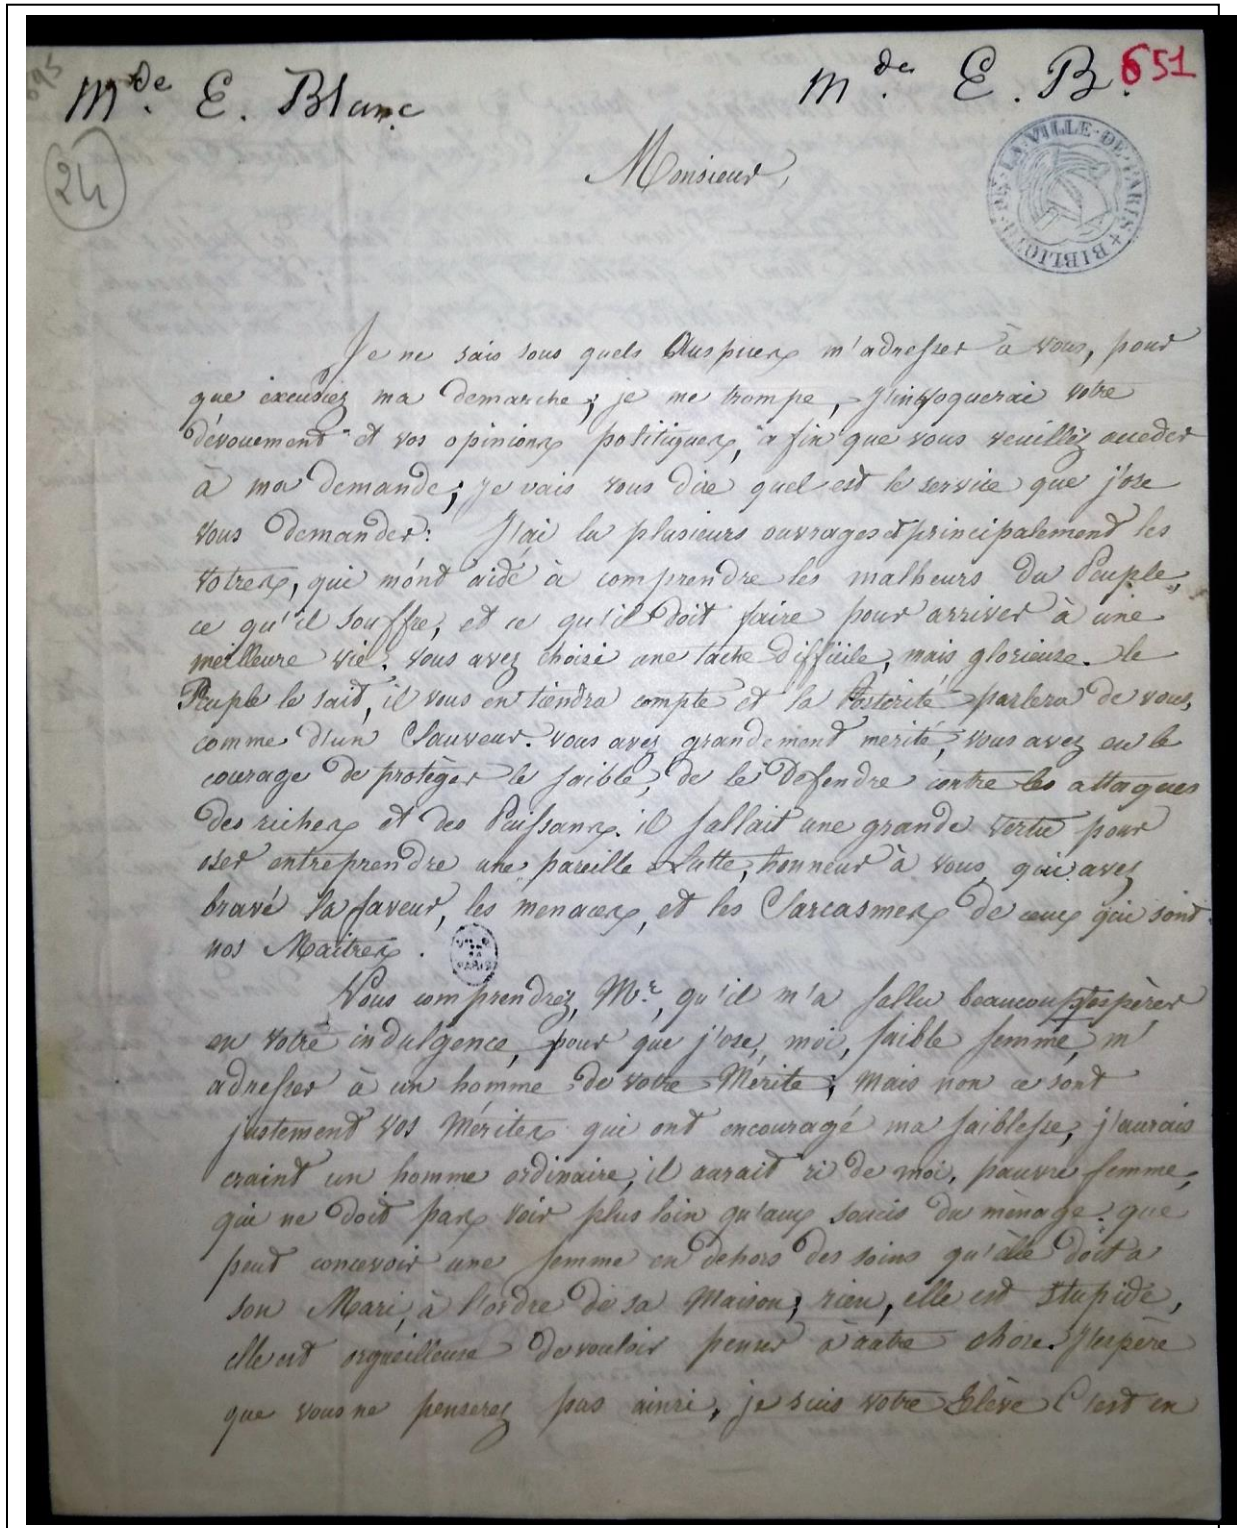 Mde. E. Blanc
Mde. E. B.
651
24
BIBLIOTH. DE LA VILLE DE PARIS
Monsieur,
Je ne sais sous quels Auspices m'adresser à vous, pour
que excusiez ma demarche; je me trompe, J'invoquerai votre
dévouement et vos opinions politiques, afin que vous veuillez acceder
à ma demande; je vais vous dire quel est le service que j'ose
vous demander: J'ai lu plusieurs ouvrages et principalement les
votres, qui m'ont aidé à comprendre les malheurs du Peuple,
ce qu'il souffre, et ce qu'il doit faire pour arriver à une
meilleure vie. vous avez choisi une tache difficile, mais glorieuse. le
Peuple le sait, il vous en tiendra compte et la Postérité parlera de vous,
comme d'un Sauveur. vous avez grandement merité, vous avez eu le
courage de protèger le faible, de le Defendre contre les attaques
des riches et des Puissans. il fallait une grande vertu pour
oser entreprendre une pareille Lutte, honneur à vous, qui avez
bravé la faveur, les menaces, et les Sarcasmes de ceux qui sont
nos Maitres.
VILLE DE PARIS
Vous comprendrez, Mr, qu'il m'a fallu beaucoup espèrer
en votre indulgence, pour que j'ose, moi, faible femme, m'
adresser à un homme de votre Mérite; mais non ce sont
justement vos Mérites qui ont encouragé ma faiblesse, j'aurais
craint un homme ordinaire, il aurait ri de moi, pauvre femme,
qui ne doit pas voir plus loin qu'aux soucis du mènage. que
peut concevoir une femme en dehors des soins qu'elle doit a
son Mari, à l'ordre de sa Maison; rien, elle est stupide,
elle est orgueilleuse de vouloir penser à autre chose. J'espère
que vous ne penserez pas ainsi, je suis votre Elève C'est en